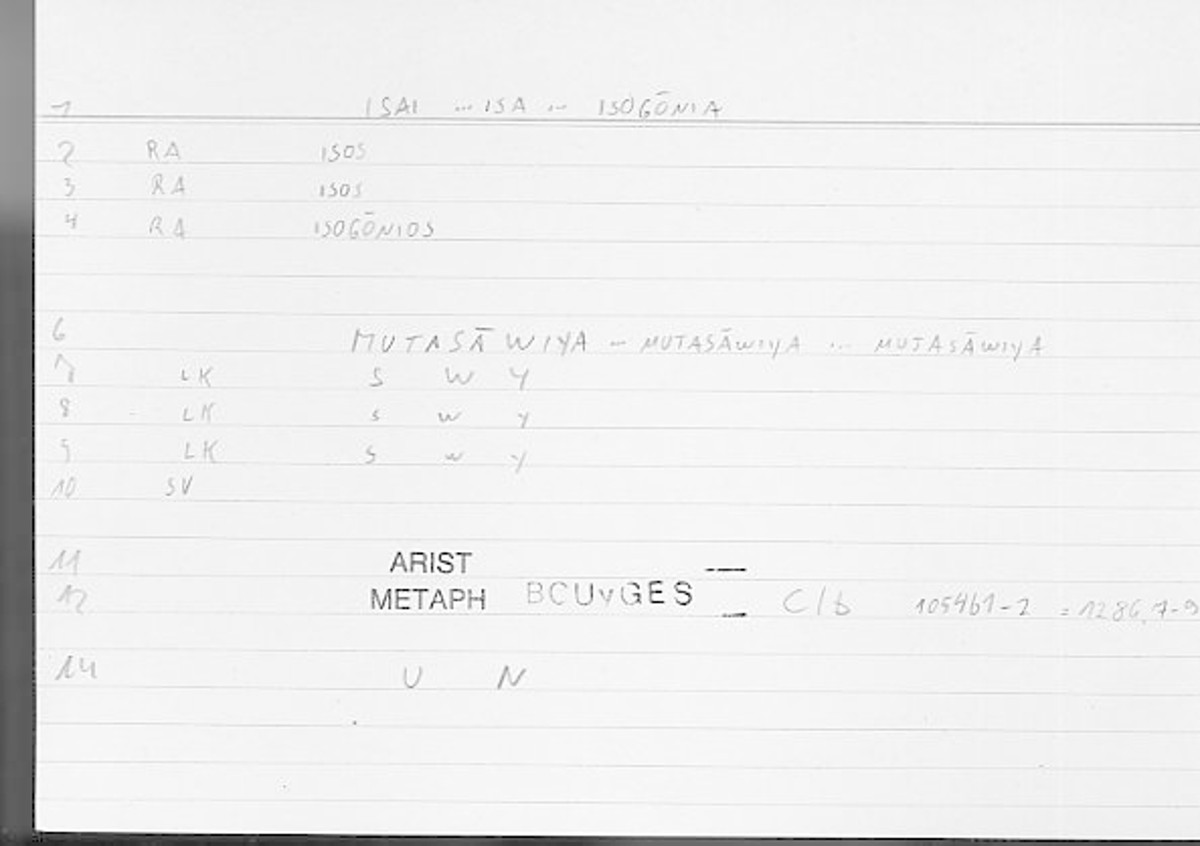 1 ISAI ... ISA ... ISOGŌNIA
2 RA ISOS
3 RA ISOS
4 RA ISOGŌNIOS
6 MUTASĀWIYA ... MUTASĀWIYA ... MUTASĀWIYA
7 LK S W Y
8 LK S W Y
9 LK S W Y
10 SV
11 ARIST
12 METAPH BCUvGES C/b 1054b1-2 = 1286,7-9
14 U N